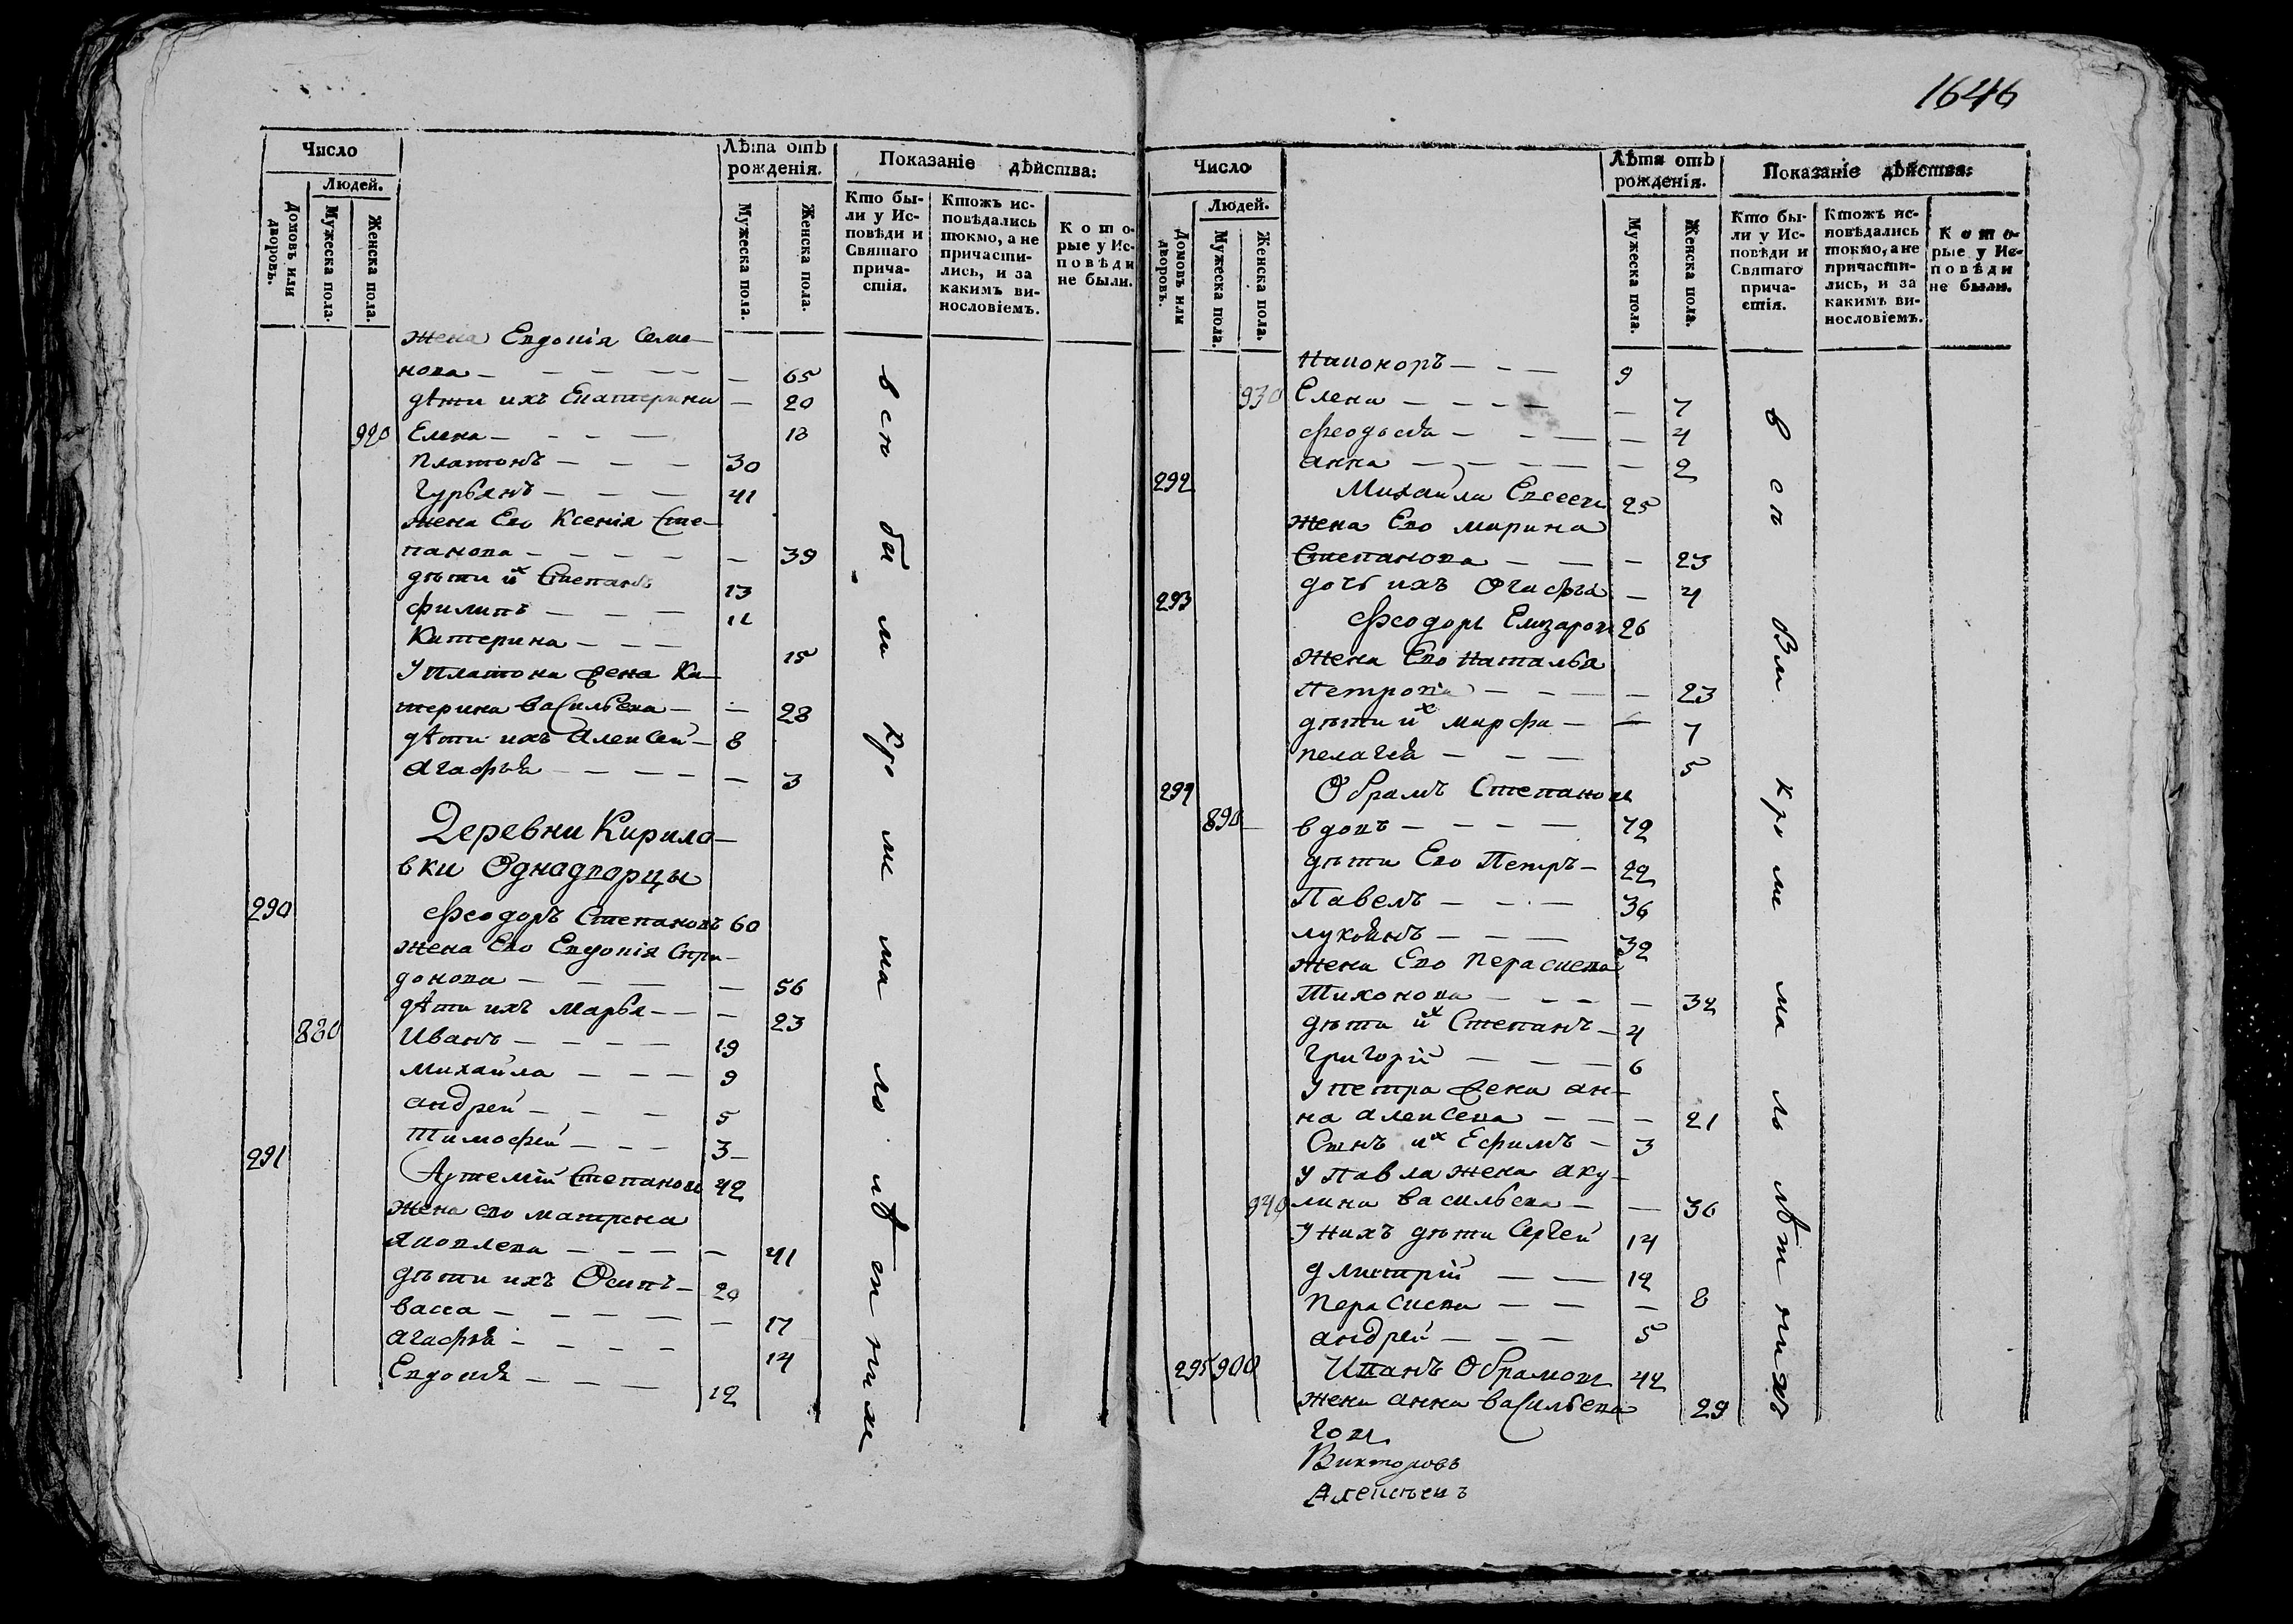 Число
Людей.
Домовъ или дворовъ.
Мужеска пола.
Женска пола.
Лѣта отъ рожденія.
Мужеска пола.
Женска пола.
Показаніе дѣйства:
Кто бы-
ли у Ис-
повѣди и
Святаго
прича-
стія.
Ктожъ ис-
повѣдались
токмо, а не
причасти-
лись, и за
какимъ ви-
нословіемъ.
Кото-
рые у Ис-
повѣди
не были.
жена Евдокія Семе-
нова — — 65
дѣти ихъ Екатерина — 20
920 Елена — 18
Платонъ — 30
Гурьянъ — 41
жена Ево Ксенія Сте-
панова — — 39
дѣти их Степанъ 13
Филипъ — 11
Катерина — 15
У Платона жена Ка-
терина Васильева — — 28
дѣти ихъ Алексей — 8
Агафья — — 3
Деревни Кирило-
вки Однадворцы
290 Феодоръ Степановъ 60
жена Ево Евдокія Спри-
донова — — 56
дѣти ихъ Марья — — 23
880 Иванъ — 19
Михайла — 9
Андрей — 5
Тимофей — 3
291 Артемій Степановъ 42
жена ево Матрена
Яковлева — — 41
дѣти ихъ Осипъ — 20
Васса — — 17
Агафья — 14
Евдокія — 12
всѣ были кроме малолѣтнихъ
1646
Число
Людей.
Домовъ или дворовъ.
Мужеска пола.
Женска пола.
Лѣта отъ рожденія.
Мужеска пола.
Женска пола.
Показаніе дѣйства:
Кто бы-
ли у Ис-
повѣди и
Святаго
прича-
стія.
Ктожъ ис-
повѣдались
токмо, а не
причасти-
лись, и за
какимъ ви-
нословіемъ.
Кото-
рые у Ис-
повѣди
не были.
Никоноръ — 9
930 Елена — — 7
Феодосья — — 4
Анна — — 2
292 Михайла Евсеевъ 25
жена Ево Марина
Степанова — — 23
дочь ихъ Огафья — 4
293 Феодоръ Елизаровъ 26
жена Ево Наталья
Петрова — — 23
дѣти их Марфа — — 7
Пелагея — 5
294 Обрамъ Степановъ
890 вдовъ — 72
дѣти Ево Петръ — 22
Павелъ — 36
Лукоянъ — 32
жена Ево Парасцева
Тихонова — — 34
дѣти их Степанъ — 4
Григорій — 6
У Петра жена Ан-
на Алексева — — 21
Сынъ их Ефимъ — 3
У Павла жена Аку-
940 лина Васильева — — 36
У нихъ дѣти Сергей 14
Дмитрій — 12
Парасцева — — 8
Андрей — 5
295 900 Иванъ Обрамовъ 42
жена Анна Васильева 29
всѣ были кроме малолѣтнихъ
Викторовъ
Алексѣевъ